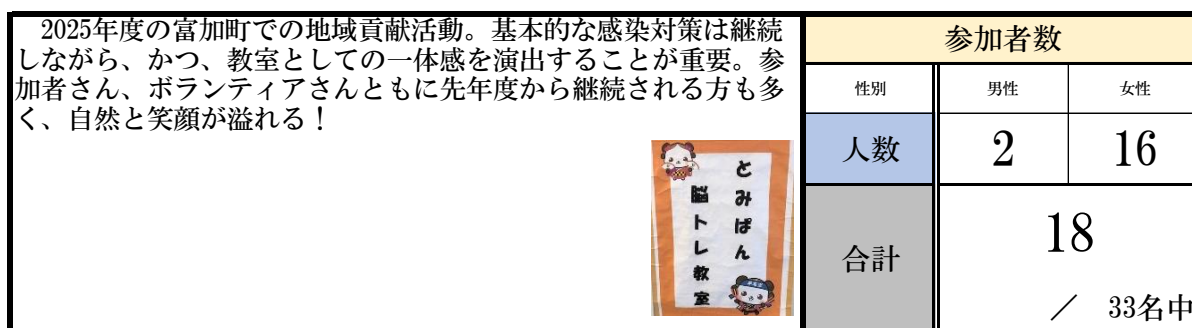 2025年度の富加町での地域貢献活動。基本的な感染対策は継続
しながら、かつ、教室としての一体感を演出することが重要。参
加者さん、ボランティアさんともに先年度から継続される方も多
く、自然と笑顔が溢れる！
とみぱん
脳トレ教室
参加者数
性別 男性 女性
人数 2 16
合計 18
／ 33名中